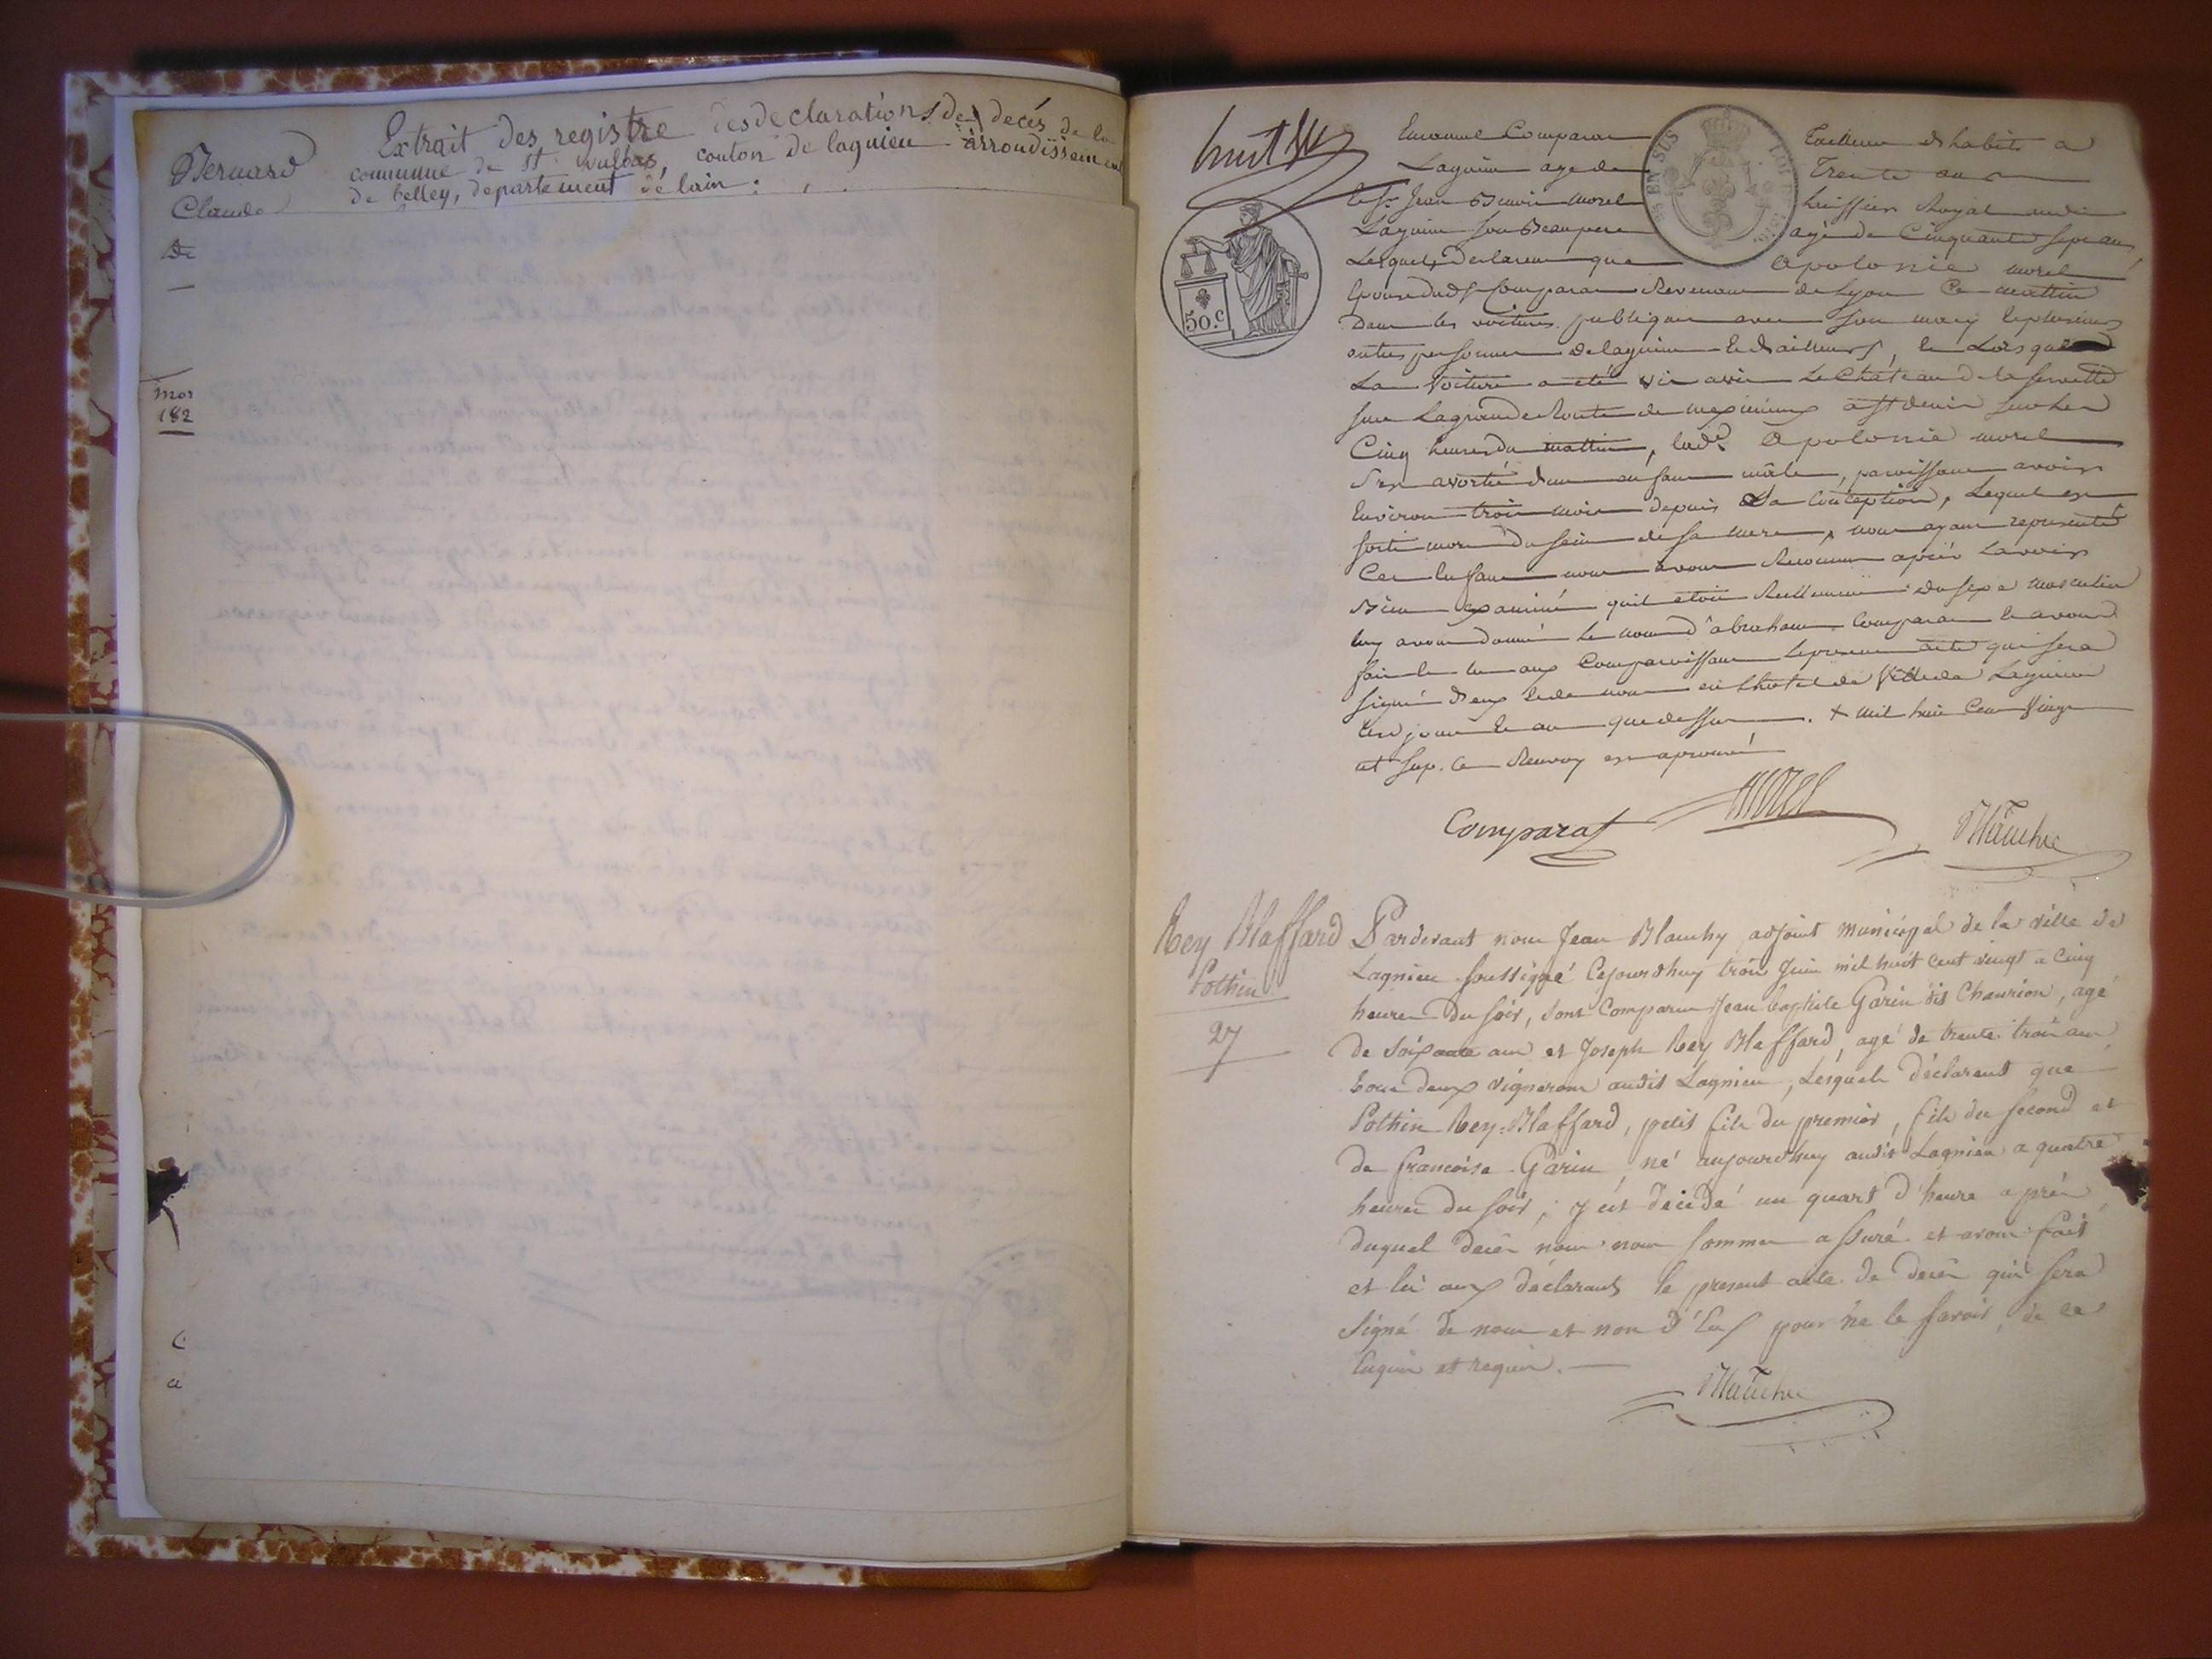 Extrait des registre des declarations de decés de la
commune de St Vulbas, conton de lagnieu arroudissement
de belley, departement de lain.
Bernard
Claude
De
mor
182
huit
EN SUS
50.c
Lagnieu age de
Tailleur d'habits a
Trente ans
le Sr Jean Benoit morel
huissier Royal
Lagnieu son Beaupere
agé de Cinquante sept ans
Lesquels Declarent que
apolonie morel
Epouse dudt Comparat Revenant de Lyon Ce mattin
Dans les voitures publiques avec son mary
autres personnes de lagnieu et d'ailleurs, et Lorsque
La Voiture a été vis avis Le Chateau de la servette
sur La grande Route de meximieux a St denis sur les
Cinq heures du mattin, lade apolonie morel
S'est avorté d'un enfant mâle, paroissant avoir
Environ trois mois depuis La Conception, Lequel est
sorti mort du sein de sa mere, nous ayant representé
Cet Enfant nous avons Reconnu après Lavoir
Bien examiné quil etoit Reellement du sexe masculin
luy avons donné Le nom d'abraham Comparat et avons
fait et lu aux Comparoissant le present acte qui sera
signé d'eux et de nous en L'hotel de Ville de Lagnieu
Les jour et an que dessus. + mil huit Cent Vingt
et sup. Ce Renvoy est aprouvé
Comparat
Morel
Blanchy
Rey Blaffard
Pothin
27
Pardevant nous Jean Blanchy adjoint municipal de la ville de
Lagnieu soussigné Cejourdhuy trois Juin mil huit cent vingt a Cinq
heures Du soir, sont Comparus Jean baptiste Garin dit Chaurion, agé
de soixante ans et Joseph Rey Blaffard, agé de trente trois ans,
tous deux vignerons audit Lagnieu, Lesquels déclarent que
Pothin Rey-Blaffard, petit fils du premier, fils du second et
de francoise Garin, né aujourdhuy audit Lagnieu a quatre
heures du soir, y est décédé un quart d'heure aprés
duquel decés nous nous sommes assuré et avons fait
et lu aux déclarants le present acte de decés qui sera
signé de nous et non d'Eux pour ne le savoir, de ce
Enquis et requis.
Blanchy